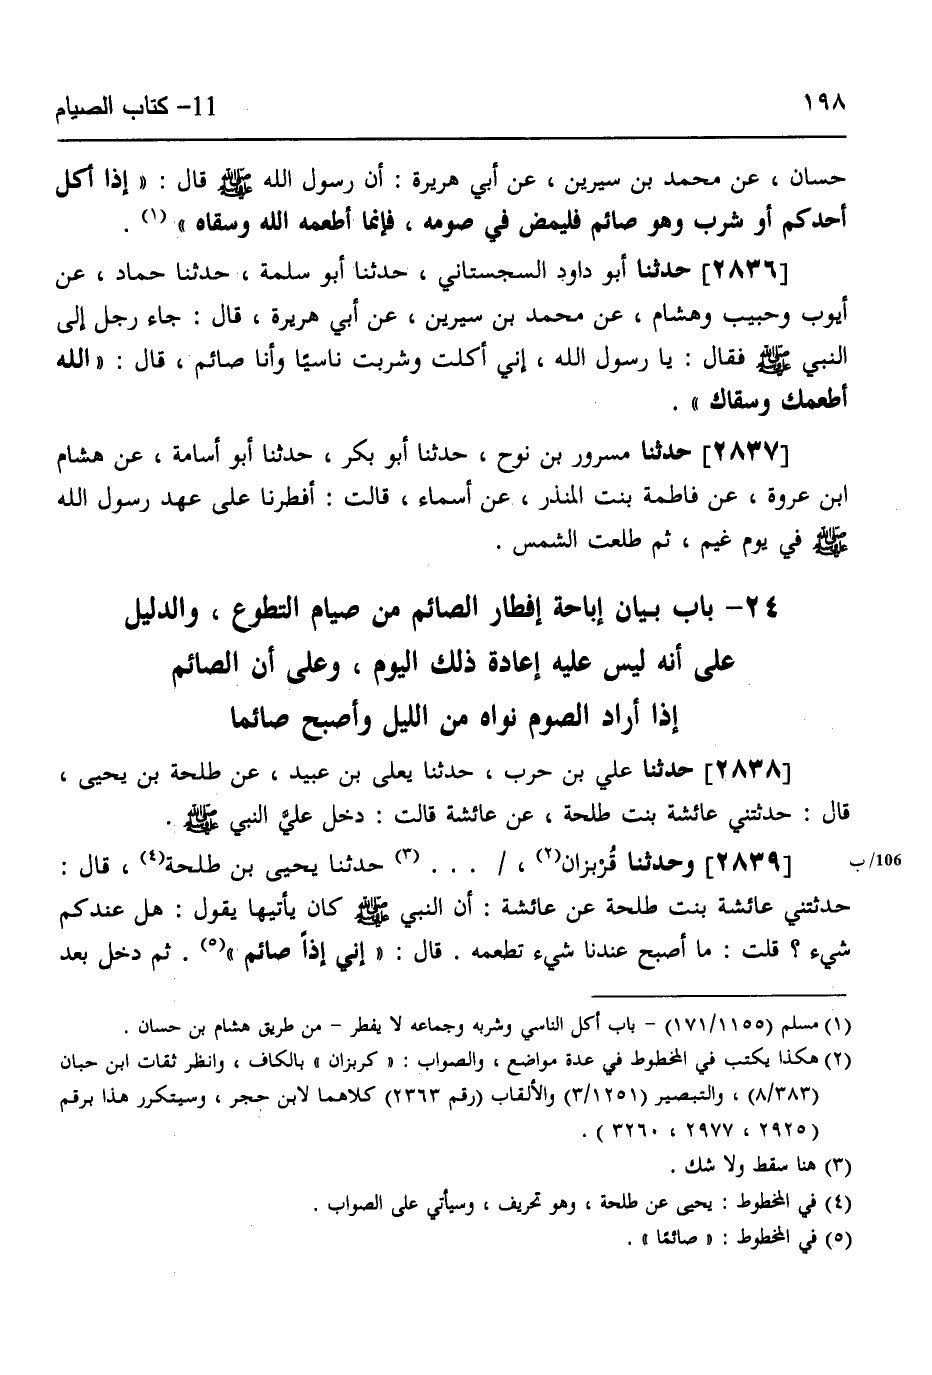 ١٩٨
11- كتاب الصيام
حسان ، عن محمد بن سيرين ، عن أبي هريرة : أن رسول الله ﷺ قال : « إذا أكل
أحدكم أو شرب وهو صائم فليمض في صومه ، فإنما أطعمه الله وسقاه » (١) .
[٢٨٣٦] حدثنا أبو داود السجستاني ، حدثنا أبو سلمة ، حدثنا حماد ، عن
أيوب وحبيب وهشام ، عن محمد بن سيرين ، عن أبي هريرة ، قال : جاء رجل إلى
النبي ﷺ فقال : يا رسول الله ، إني أكلت وشربت ناسيًا وأنا صائم ، قال : « الله
أطعمك وسقاك » .
[٢٨٣٧] حدثنا مسرور بن نوح ، حدثنا أبو بكر ، حدثنا أبو أسامة ، عن هشام
ابن عروة ، عن فاطمة بنت المنذر ، عن أسماء ، قالت : أفطرنا على عهد رسول الله
ﷺ في يوم غيم ، ثم طلعت الشمس .
٢٤- باب بيان إباحة إفطار الصائم من صيام التطوع ، والدليل
على أنه ليس عليه إعادة ذلك اليوم ، وعلى أن الصائم
إذا أراد الصوم نواه من الليل وأصبح صائما
[٢٨٣٨] حدثنا علي بن حرب ، حدثنا يعلى بن عبيد ، عن طلحة بن يحيى ،
قال : حدثتني عائشة بنت طلحة ، عن عائشة قالت : دخل عليَّ النبي ﷺ .
[٢٨٣٩] وحدثنا قُرْبزان(٢) ، / . . . (٣) حدثنا يحيى بن طلحة(٤) ، قال :
106/ب
حدثتني عائشة بنت طلحة عن عائشة : أن النبي ﷺ كان يأتيها يقول : هل عندكم
شيء ؟ قلت : ما أصبح عندنا شيء تطعمه . قال : « إني إذاً صائم »(٥) . ثم دخل بعد
(١) مسلم (١٧١/١١٥٥) - باب أكل الناسي وشربه وجماعه لا يفطر - من طريق هشام بن حسان .
(٢) هكذا يكتب في المخطوط في عدة مواضع ، والصواب : « كربزان » بالكاف ، وانظر ثقات ابن حبان
(٨/٣٨٣) ، والتبصير (٣/١٢٥١) والألقاب (رقم ٢٣٦٣) كلاهما لابن حجر ، وسيتكرر هذا برقم
(٢٩٢٥ ، ٢٩٧٧ ، ٣٢٦٠ ) .
(٣) هنا سقط ولا شك .
(٤) في المخطوط : يحيى عن طلحة ، وهو تحريف ، وسيأتي على الصواب .
(٥) في المخطوط : « صائمًا » .